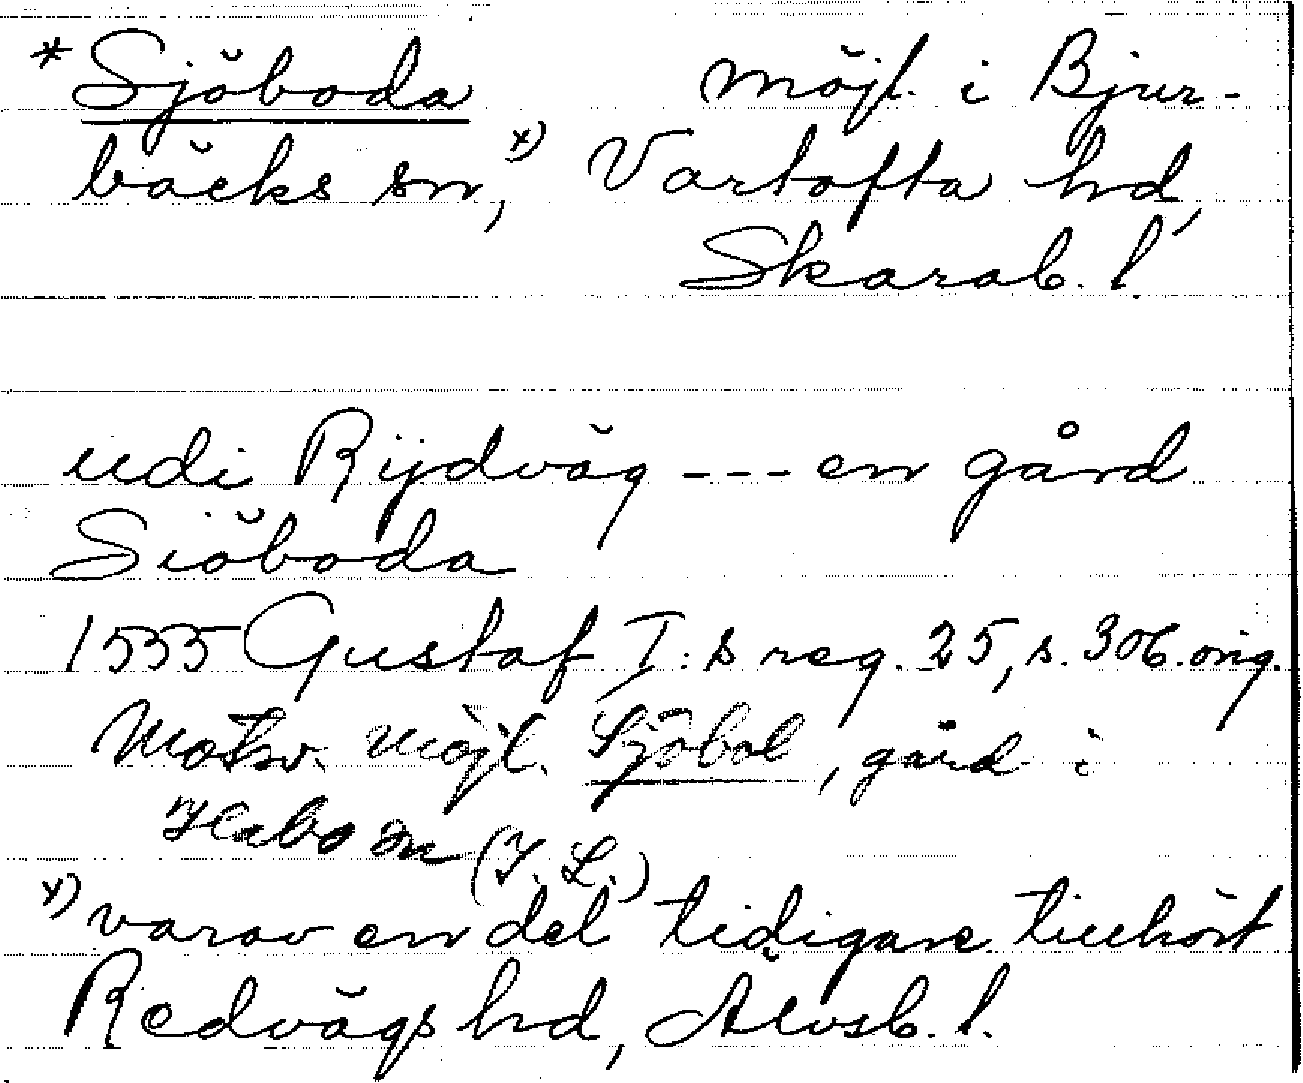 * Sjöboda möjl. i Bjur-
bäcks sn, x) Vartofta hd,
Skarab. l
udi Rijdväg --- en gård
Siöboda
1555 Gustaf I:s reg. 25, s. 306. orig.
Motsv. möjl. Sjöbol, gård i
Habo sn (I. L.)
x) varav en del tidigare tillhört
Redvägs hd, Älvsb. l.